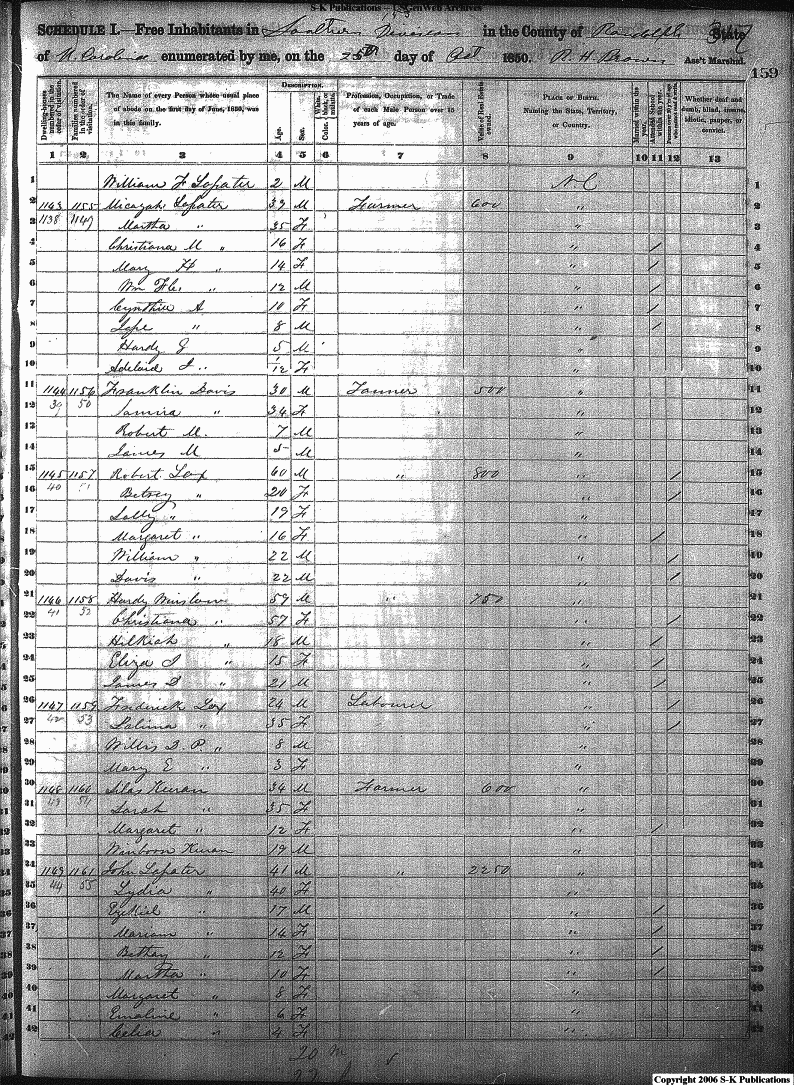 S-K Publications - USGenWeb Archives
SCHEDULE I.—Free Inhabitants in Southern Division in the County of Randolph State
of N. Carolina enumerated by me, on the 25th day of Oct 1850. R. H. Brown Ass't Marshal.
159
Dwelling-houses numbered in the order of visitation.
Families numbered in the order of visitation.
The Name of every Person whose usual place of abode on the first day of June, 1850, was in this family.
DESCRIPTION.
Age.
Sex.
Color. White, black, or mulatto.
Profession, Occupation, or Trade of each Male Person over 15 years of age.
Value of Real Estate owned.
PLACE OF BIRTH. Naming the State, Territory, or Country.
Married within the year.
Attended School within the year.
Persons over 20 y'rs of age who cannot read & write.
Whether deaf and dumb, blind, insane, idiotic, pauper, or convict.
1 2 3 4 5 6 7 8 9 10 11 12 13
1 William F 2 M N C 1
2 1143 1155 Micajah 39 M Farmer 600 " 2
3 1138 1149 Martha " 35 F " 3
4 Christiana M " 16 F " / 4
5 Mary H " 14 F " / 5
6 Wm " 12 M " / 6
7 Cynthia A 10 F " / 7
8 " 8 M " / 8
9 Hardy G 5 M " 9
10 Adelaid " F " 10
11 1144 1156 Franklin Davis 30 M Farmer 500 " 11
12 39 50 " 34 F " 12
13 Robert M. 7 M " 13
14 James M 5 M " 14
15 1145 1157 Robert 60 M " 800 " / 15
16 40 Betsey " 20 F " / 16
17 Sally " 19 F " 17
18 Margaret " 16 F " / 18
19 William " 22 M " / 19
20 Davis " 22 M " / 20
21 1146 1158 Hardy Winslow 59 M " 750 " 21
22 41 52 Christiana " 57 F " / 22
23 Hilkiah " 18 M " / 23
24 Eliza J " 15 F " / 24
25 James D " 21 M " / 25
26 1147 1159 Frederick 24 M Labourer " / 26
27 42 53 " 35 F " / 27
28 Willis D. P. " 8 M " 28
29 Mary E " 3 F " 29
30 1148 1160 Silas 34 M Farmer 600 " 30
31 43 54 Sarah " 35 F " 31
32 Margaret " 12 F " / 32
33 19 M " 33
34 1149 1161 John 41 M " 2250 " 34
35 44 55 Lydia " 40 F " 35
36 Ezekiel " 17 M " / 36
37 Mariam " 14 F " / 37
38 Bethay " 12 F " / 38
39 Martha " 10 F " / 39
40 Margaret " 8 F " 40
41 Emaline " 6 F " 41
42 Celia " 4 F " 42
20 M
22
Copyright 2006 S-K Publications